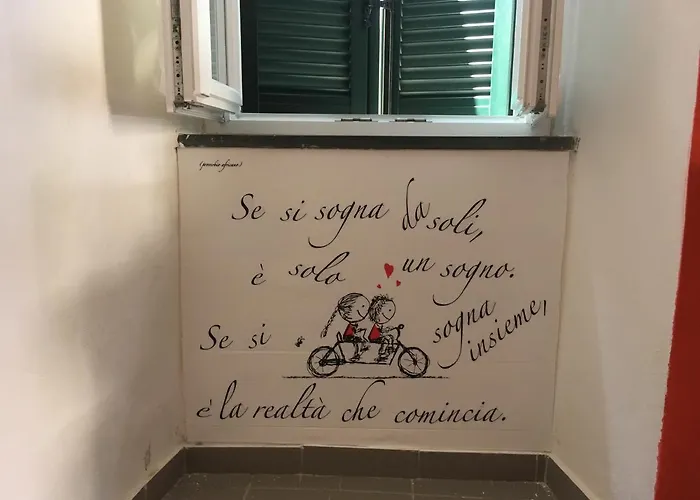 (proverbio africano)
Se si sogna da soli,
è solo un sogno.
Se si sogna insieme,
è la realtà che comincia.